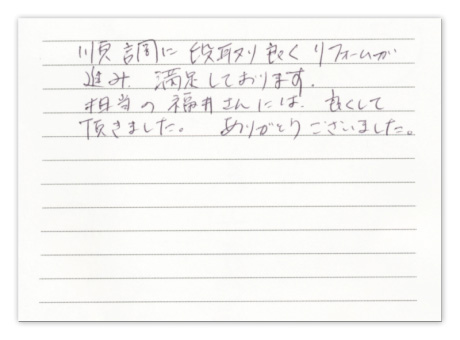 順調に段取り良くリフォームが
進み、満足しております。
担当の福井さんには、良くして
頂きました。 ありがとうございました。